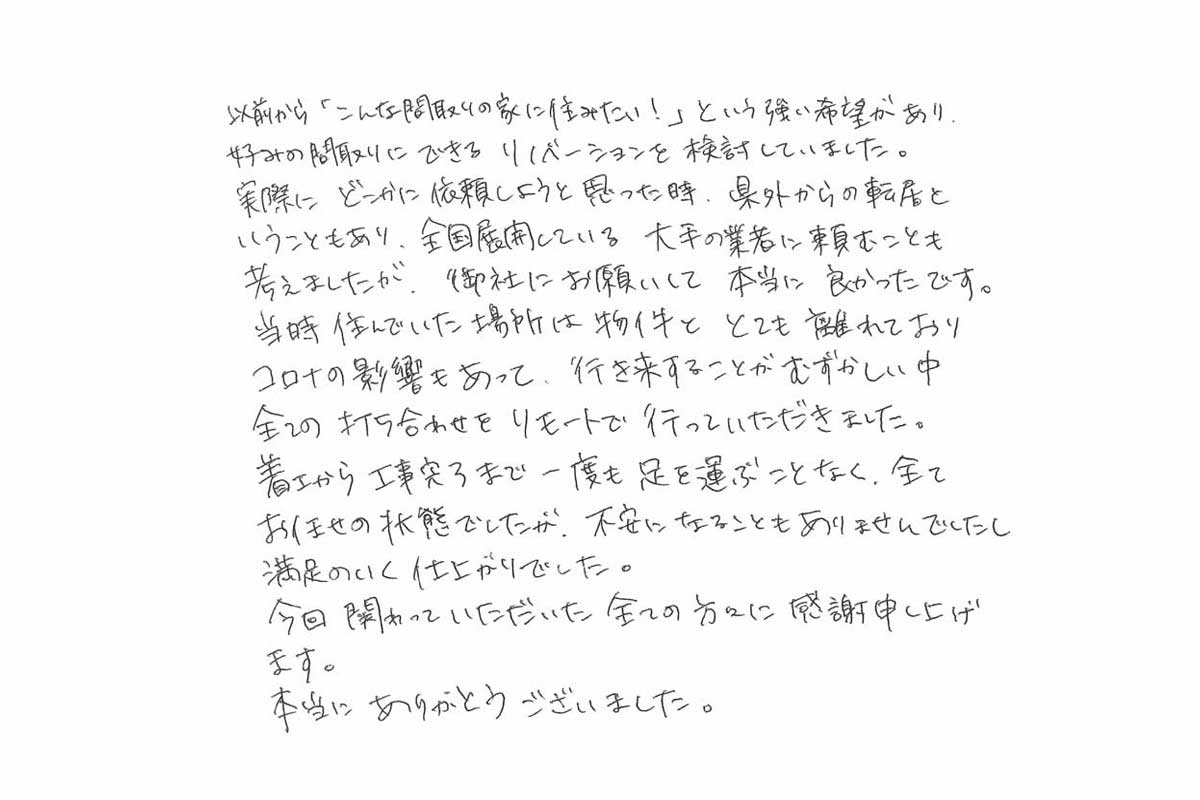 以前から「こんな間取りの家に住みたい！」という強い希望があり、
好みの間取りにできるリノベーションを検討していました。
実際にどこかに依頼しようと思った時、県外からの転居と
いうこともあり、全国展開している大手の業者に頼むことも
考えましたが、御社にお願いして本当に良かったです。
当時住んでいた場所は物件ととても離れており
コロナの影響もあって、行き来することがむずかしい中
全ての打ち合わせをリモートで行っていただきました。
着工から工事完了まで一度も足を運ぶことなく、全て
お任せの状態でしたが、不安になることもありませんでしたし
満足のいく仕上がりでした。
今回関わっていただいた全ての方々に感謝申し上げ
ます。
本当にありがとうございました。